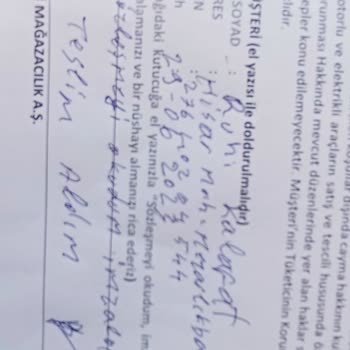 dışında cayma hakkının ku
otorlu ve elektrikli araçların satış ve tescili hususunda ö
orunması Hakkında mevcut düzenlerinde yer alan haklar s
epler konu edilemeyecektir. Müşteri'nin Tüketicinin Koru
alıdır.
ŞTERİ (el yazısı ile doldurulmalıdır)
SOYAD : Ruhi Kalafat
RES : Hisar Mah.
N
h
ğıdaki kutucuğa el yazınızla 'Sözleşmeyi okudum, im
manızı ve bir nüshayı almanızı rica ederiz)
özleşmeyi okudum imzala
Teslim Aldım
MAĞAZACILIK A.Ş.